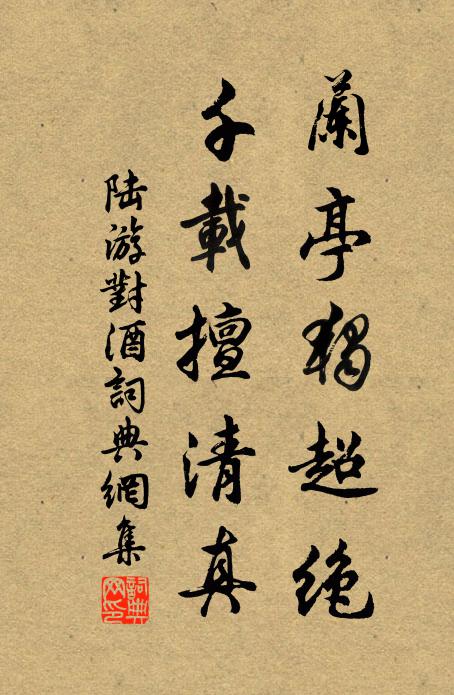 蘭亭獨超絶
千載擅清真
陸游對酒詞典網集
詞典網印